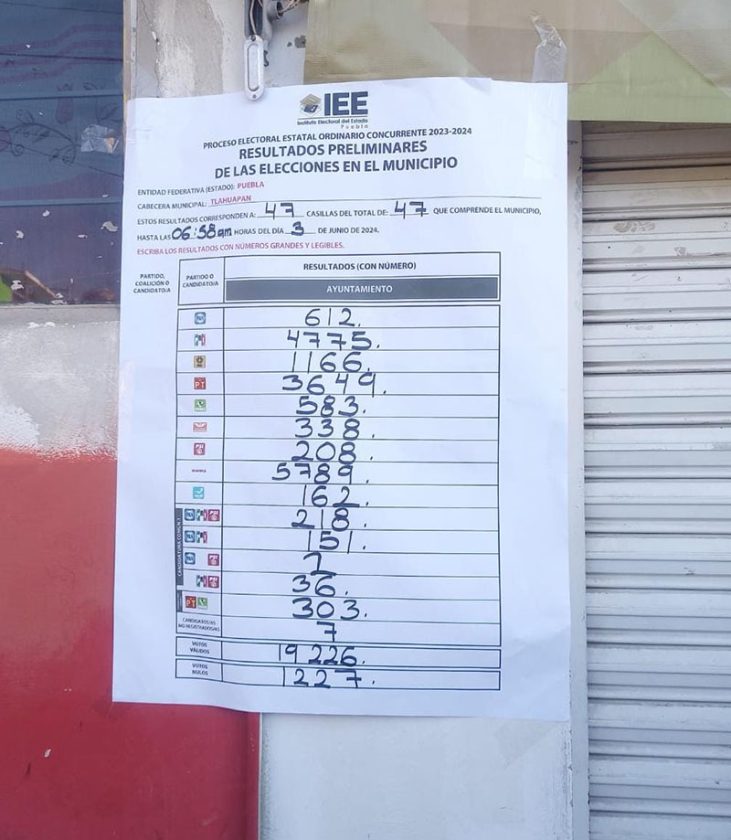 IEE
Instituto Electoral del Estado
Puebla
PROCESO ELECTORAL ESTATAL ORDINARIO CONCURRENTE 2023-2024
RESULTADOS PRELIMINARES
DE LAS ELECCIONES EN EL MUNICIPIO
ENTIDAD FEDERATIVA (ESTADO): PUEBLA
CABECERA MUNICIPAL: TLAHUAPAN
ESTOS RESULTADOS CORRESPONDEN A: 47 CASILLAS DEL TOTAL DE: 47 QUE COMPRENDE EL MUNICIPIO,
HASTA LAS 06:58am HORAS DEL DÍA 3 DE JUNIO DE 2024.
ESCRIBA LOS RESULTADOS CON NÚMEROS GRANDES Y LEGIBLES.
PARTIDO, COALICIÓN O CANDIDATO/A
PARTIDO O CANDIDATO/A
RESULTADOS (CON NÚMERO)
AYUNTAMIENTO
PAN 612.
PRI 4775.
1166.
PT 3649.
583.
338.
PSI 208.
morena 5789.
162.
PAN PRI PSI 218.
PAN PRI 151.
PAN PSI 2
PRI PSI 36.
PT 303.
CANDIDATURA COMÚN
CANDIDATOS/AS NO REGISTRADOS/AS 7
VOTOS VÁLIDOS 19226.
VOTOS NULOS 1227.